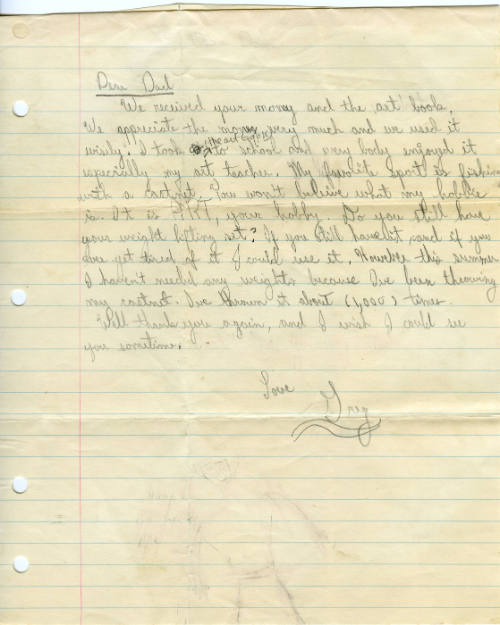 Dear Dad
We received your money and the art book.
We appreciate the money very much and we used it
wisely. I took the art book to school and very body enjoyed it
especially my art teacher. My favorite sport is fishing
with a castnet. You won't believe what my hobbie
is. It is ART, your hobby. Do you still have
your weight lifting set? If you still have it, and if you
ever get tired of it I could use it. However this summer
I haven't needed any weights because I've been throwing
my castnet. I've thrown it about (1,000) times.
Well thank you again, and I wish I could see
you sometime.
Love
Greg